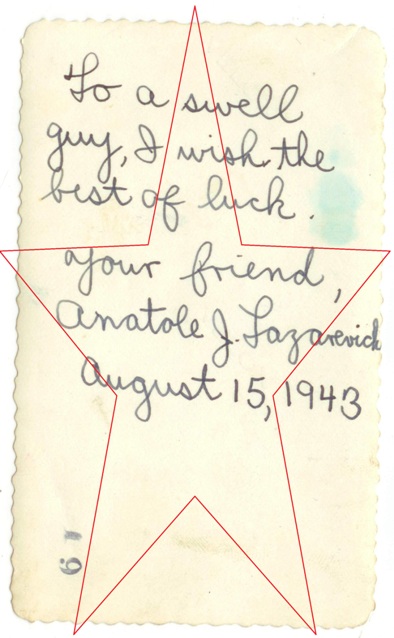 To a swell
guy, I wish the
best of luck.
Your friend,
Anatole J. Lazarevich
August 15, 1943
19